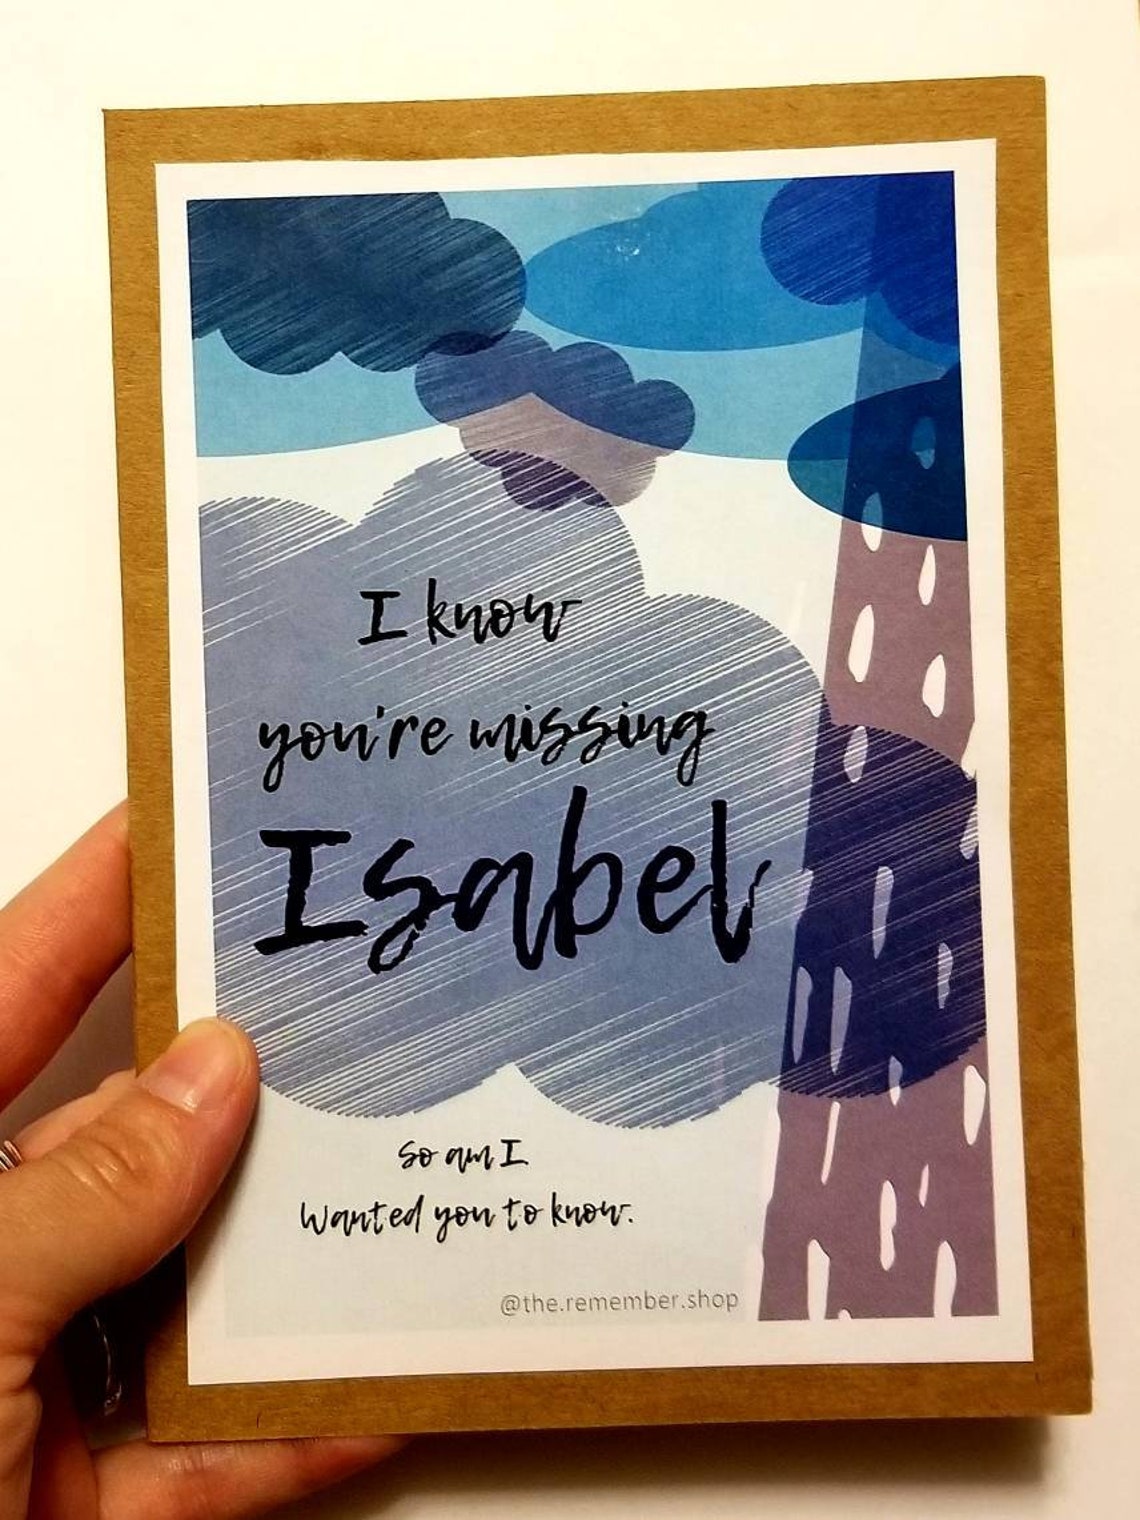 I know
you're missing
Isabel
So am I.
Wanted you to know.
@the.remember.shop